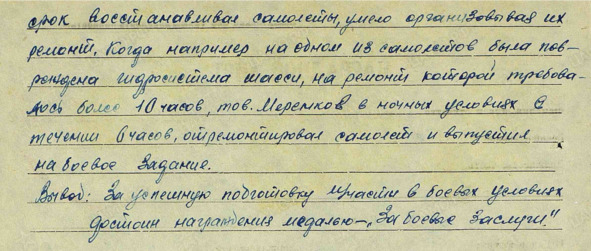 срок восстанавливал самолеты, умело организовывая их
ремонт. Когда например на одном из самолетов была пов-
реждена гидросистема шасси, на ремонт которой требова-
лось более 10 часов, тов. Меремков в ночных условиях в
течении 6 часов, отремонтировал самолет и выпустил
на боевое задание.
Вывод: За успешную подготовку матчасти в боевых условиях
достоин награждения медалью – „За боевые заслуги".